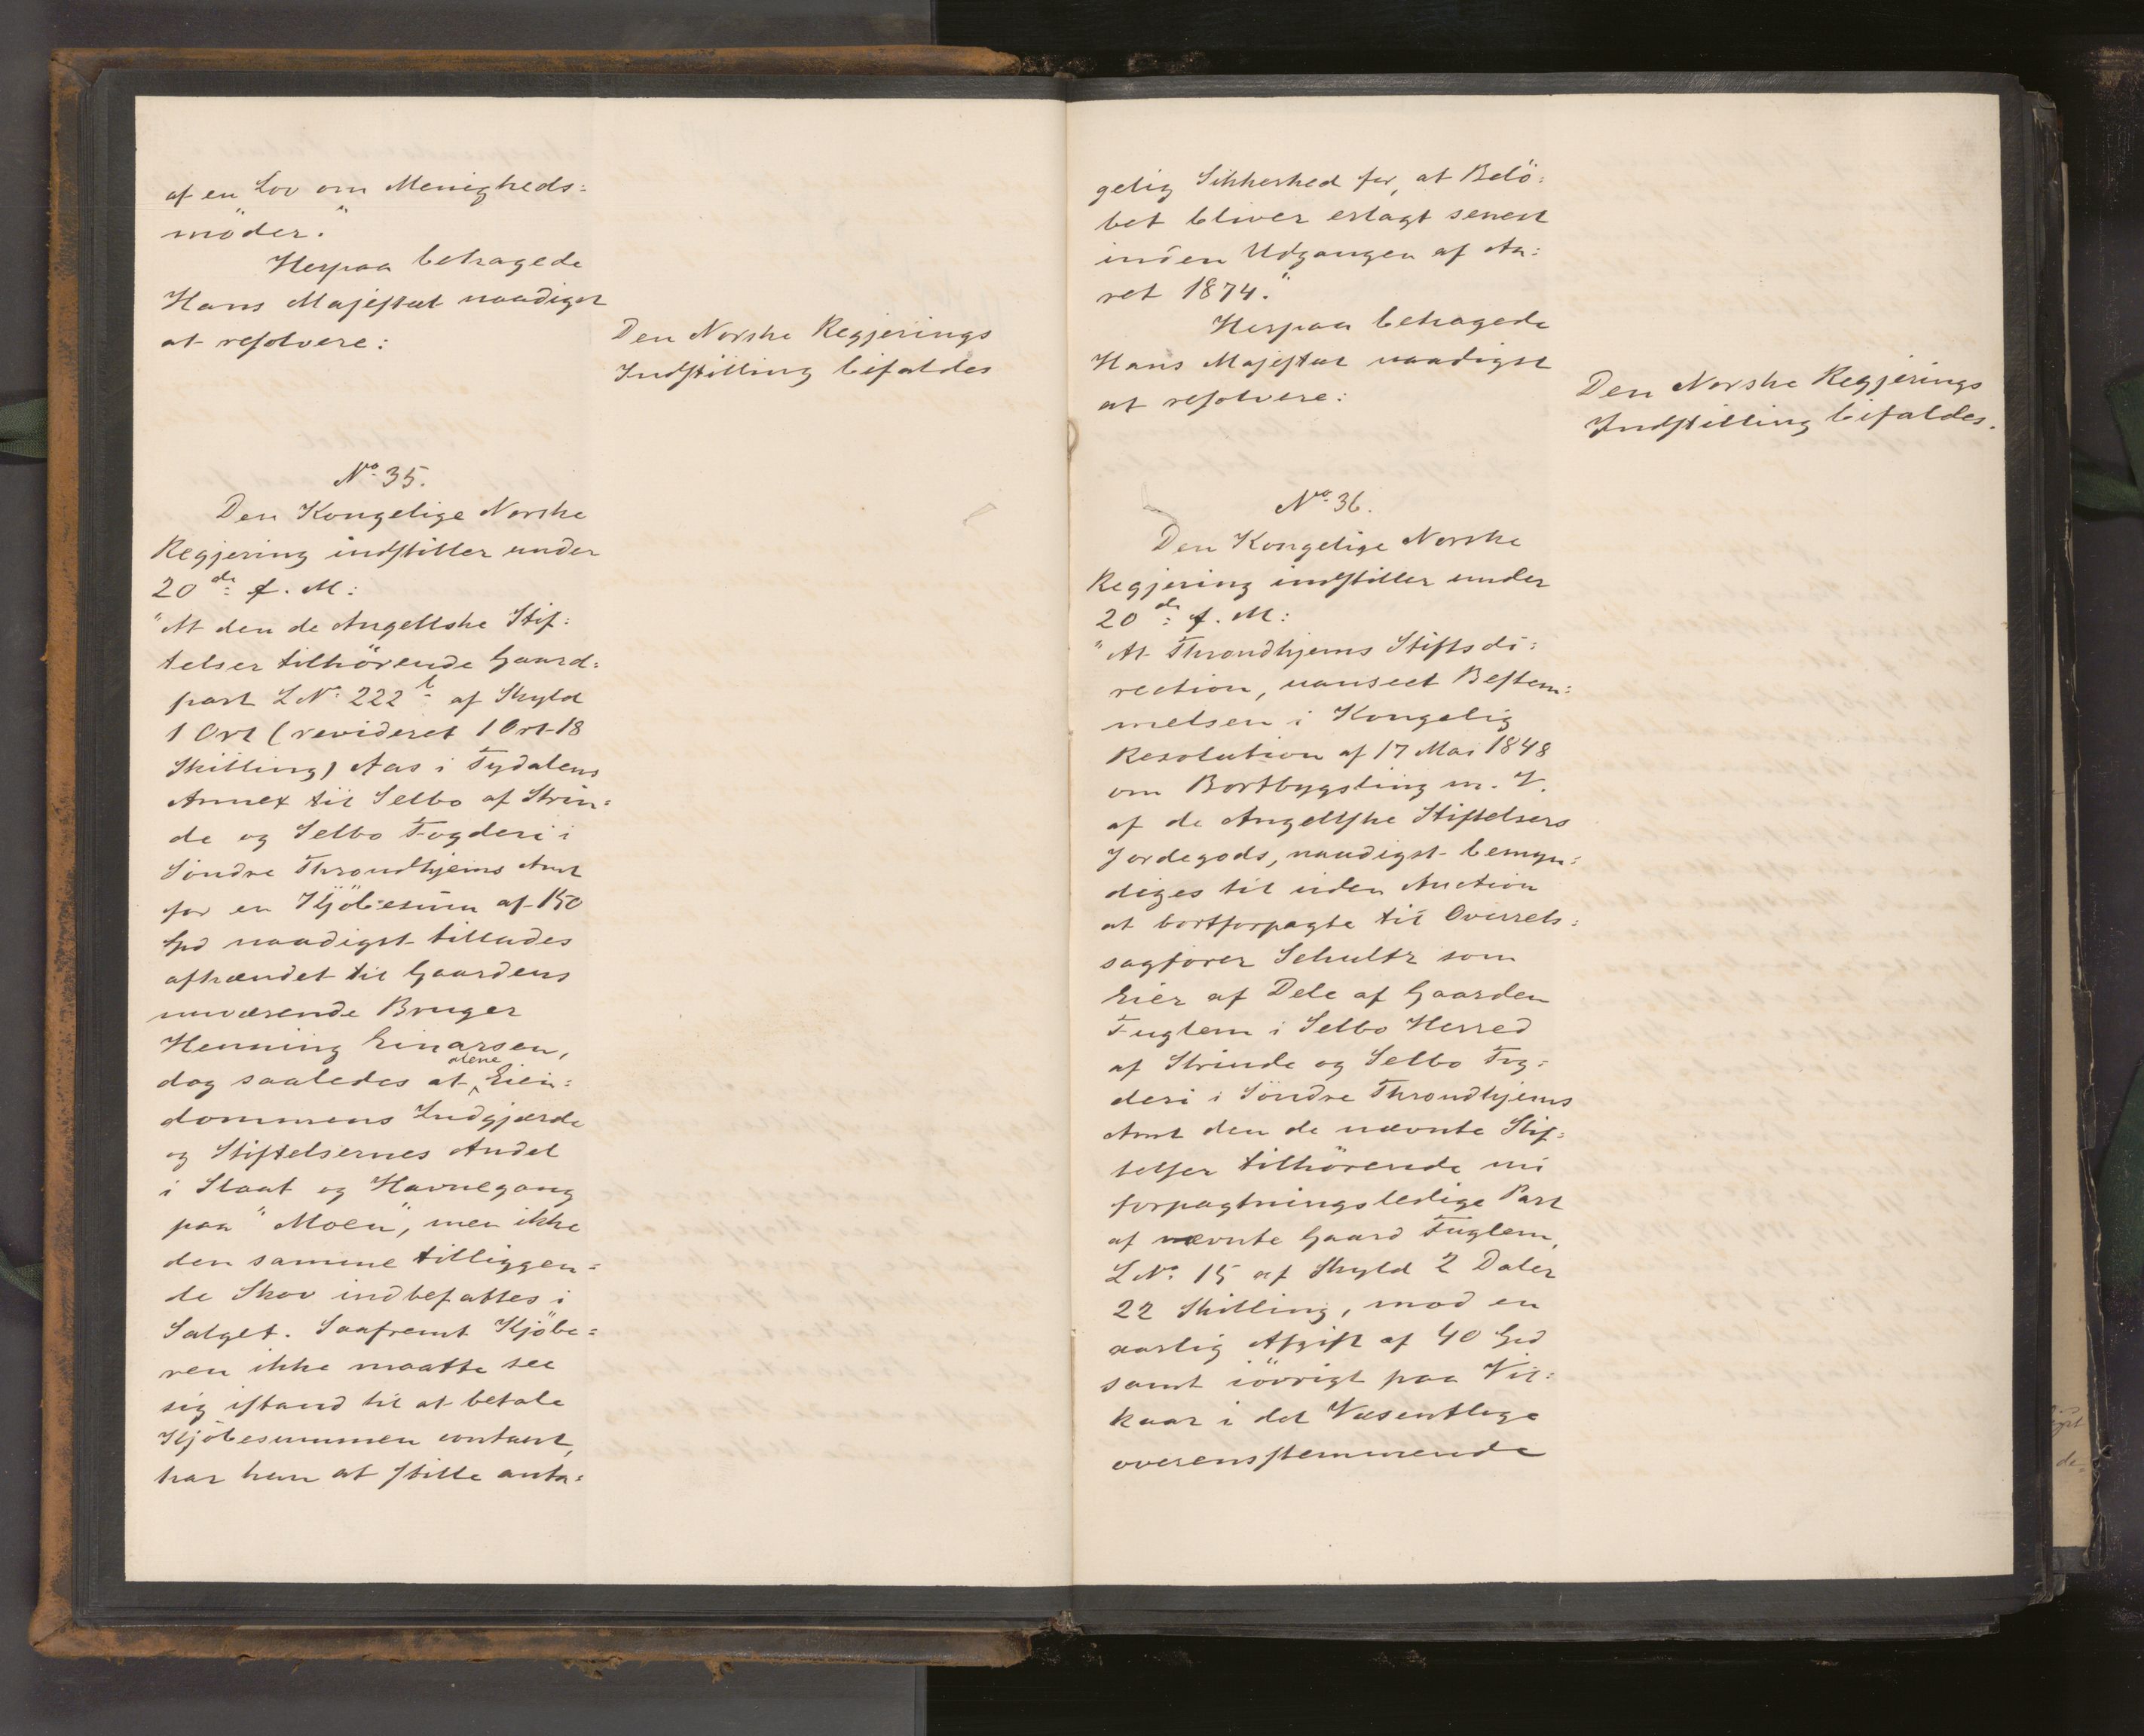 af en Lov om Menigheds:
möder."
Herpaa behagede
Hans Majestæt naadigst
at resolvere:
Den Norske Regjerings
Indstilling bifaldes
No. 35.
Den Kongelige Norske
Regjering indstiller under
20de f. M:
"At den de Angellske Stif:
telser tilhörende Gaard:
part L No. 222 b af Skyld
1 Ort (revideret 1 Ort 18
Skilling) Aas i Tydalens
Annex til Selbo af Strin:
de og Selbo Fogderi i
Söndre Throndhjems Amt
for en Kjöbesum af 150
Spd naadigst tillades
afhændet til Gaardens
nuværende Bruger
Henning Einarsen,
dog saaledes at alene Eien:
dommens Indgjærde
og Stiftelsernes Andel
i Slaat og Havnegang
paa "Moen", men ikke
den samme tilliggen:
de Skov indbefattes i
Salget. Saafremt Kjöbe:
ren ikke maatte see
sig istand til at betale
Kjöbesummen contant,
har han at stille anta:
gelig Sikkerhed for, at Belö:
bet bliver erlagt senest
inden Udgangen af Aa:
ret 1874."
Herpaa behagede
Hans Majestæt naadigst
at resolvere:
Den Norske Regjerings
Indstilling bifaldes.
No. 36.
Den Kongelige Norske
Regjering indstiller under
20de f. M:
"At Throndhjems Stiftsdi:
rection, uanseet Bestem:
melsen i Kongelig
Resolution af 17 Mai 1848
om Bortbygsling m. V.
af de Angellske Stiftelsers
Jordegods, naadigst bemyn:
diges til uden Auction
at bortforpagte til Overrets:
sagförer Schultz som
Eier af Dele af Gaarden
Fuglem i Selbo Herred
af Strinde og Selbo Fog:
deri i Söndre Throndhjems
Amt den de nævnte Stif:
telser tilhörende nu
forpagtningsledige Part
af nævnte Gaard Fuglem,
L No. 15 af Skyld 2 Daler
22 Skilling, mod en
aarlig Afgift af 40 Spd
samt iövrigt paa Vil:
kaar i det Væsentlige
overensstemmende